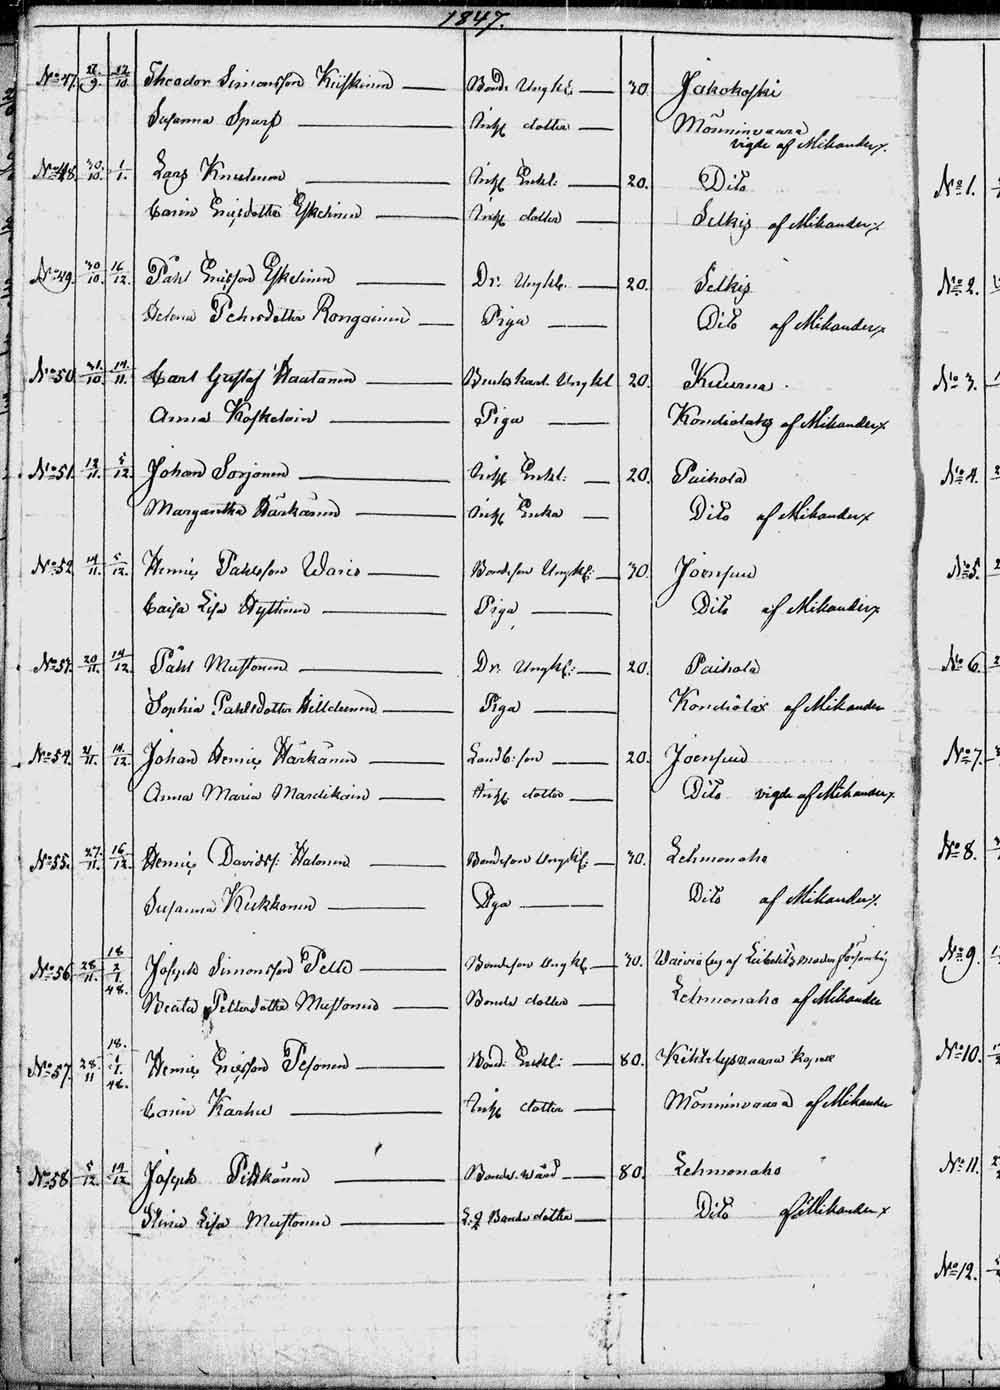 1847.
No 47. 27/9. 22/10. Theodor Simonsson Kuiskinen Bond. Ungkl. 30. Jakokoski
Susanna Sparf Inhs dotter Mönninvaara
vigde af Mikander x.
No 48. 30/10. 1/1. Lars Knutinen Inhs Enkl: 20. Dito
Carin Ericsdotter Eskelinen Inhs dotter Selkis af Mikander x
No 49. 30/10. 16/12. Påhl Ericsson Eskelinen Dr. Ungkl. 20. Selkis
Helena Pehrsdotter Rongainen Piga Dito af Mikander x
No 50. 31/10. 14/11. Carl Gustaf Haatanen Ungkl 20. Kuurna.
Anna Koskeloin Piga Kondiolaks af Mikander x
No 51. 12/11. 5/12. Johan Sorjonen Inhs Enkl: 20. Paihola
Margaretha Härkänen Inhs Enka Dito af Mikander x
No 52. 14/11. 5/12. Henric Pahlsson Waris Bondeson Ungkl: 30. Joensuu
Caisa Lisa Hyttinen Piga Dito af Mikander x
No 53. 20/11. 14/12. Påhl Mustonen Dr. Ungkl: 20. Paihola
Sophia Pahlsdotter Piga Kondiolax af Mikander
No 54. 21/11. 14/12. Johan Henric Härkänen Landb: son 20. Joensuu
Anna Maria Mardikain Inhs. dotter Dito vigde af Mikander x
No 55. 27/11. 16/12. Henric Davidss: Halonen Bondeson Ungkl: 30. Lehmonaho
Susanna Kukkonen Piga Dito af Mikander x.
No 56. 28/11. 18 2/1. 48. Joseph Simonsson Pelto Bondeson Ungkl. 30. af Libelits moderförsamling
Beata Pettersdotter Mustonen Bonde dotter Lehmonaho af Mikander
No 57. 28/11 18. 1/1. 48. Henric Ericsson Pesonen Bond. Enkl: 80.
Carin Karhu Inhs dotter Mönninvaara af Mikander
No 58 5/12. 14/12 Joseph Pitkänen Bonde 80. Lehmonaho
Stina Lisa Mustonen Bonde dotter Dito af Mikander x
No 1.
No 2.
No 3.
No 4.
No 5.
No 6.
No 7.
No 8.
No 9.
No 10.
No 11.
No 12.